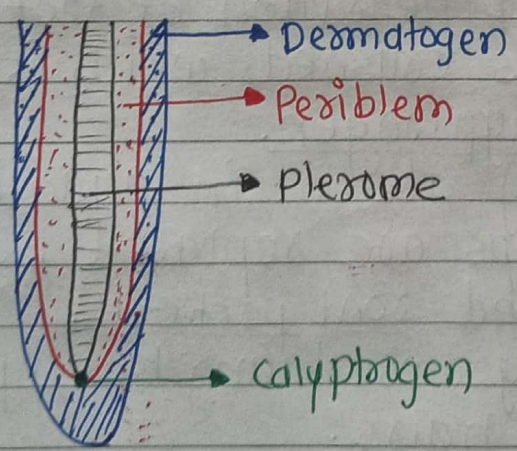 Dermatogen
Periblem
Plerome
Calyptrogen